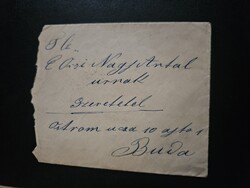 Tk.
Elisi Nagy Antal
urnak
szeretetel
Ostrom ucza 10 ajto 1
Buda